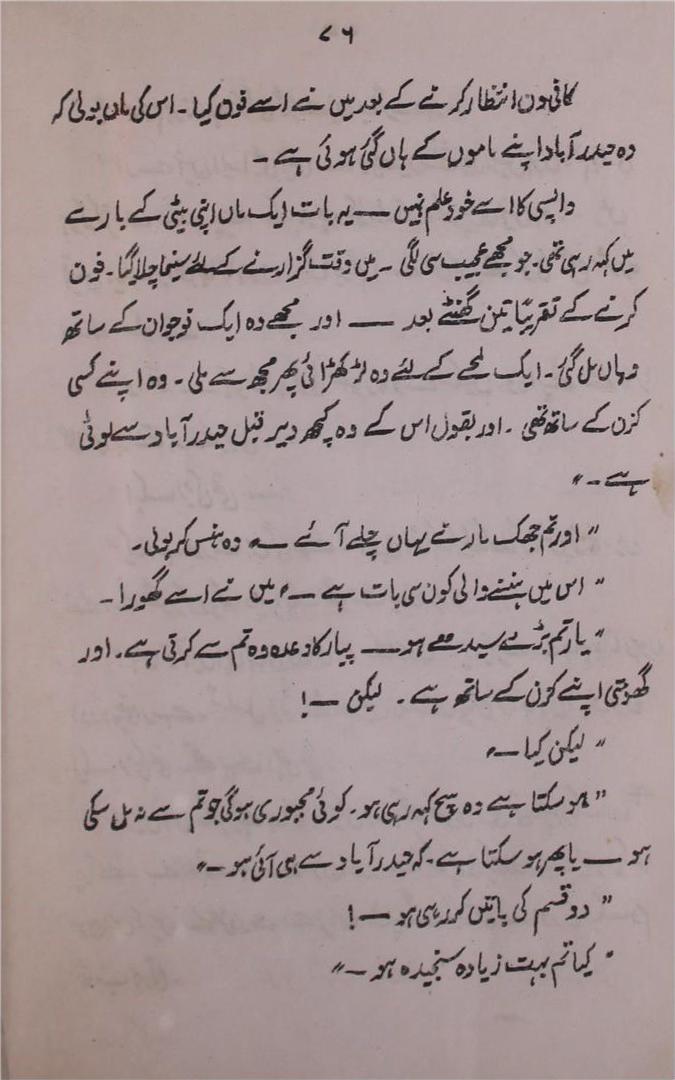 ۷۶
کافی دن انتظار کرنے کے بعد میں نے اسے فون کیا ۔ اس کی ماں بولی کہ
وہ حیدرآباد اپنے ماموں کے ہاں گئی ہوئی ہے ۔
واپسی کا اسے خود علم نہیں — یہ بات ایک ماں اپنی بیٹی کے بارے
میں کہہ رہی تھی ۔ جو مجھے عجیب سی لگی ۔ میں وقت گزارنے کے لئے سینما چلا گیا ۔ فون
کرنے کے تقریباً تین گھنٹے بعد — اور مجھے وہ ایک نوجوان کے ساتھ
وہاں مل گئی ۔ ایک لمحے کے لئے وہ لڑکھڑائی پھر مجھ سے ملی ۔ وہ اپنے کسی
کزن کے ساتھ تھی ۔ اور بقول اس کے وہ کچھ دیر قبل حیدرآباد سے لوٹی
ہے ۔ "
" اور تم جھک مارنے یہاں چلے آئے —" وہ ہنس کر بولی ۔
" اس میں ہنسنے والی کون سی بات ہے —" میں نے اسے گھورا ۔
" یار تم بڑے سیدھے ہو — پیار کا وعدہ وہ تم سے کرتی ہے ۔ اور
گھومتی اپنے کزن کے ساتھ ہے ۔ لیکن — !
" لیکن کیا —"
" ہو سکتا ہے وہ سچ کہہ رہی ہو ۔ کوئی مجبوری ہو گی جو تم سے نہ مل سکی
ہو — یا پھر ہو سکتا ہے ۔ کہ حیدرآباد سے ہی آئی ہو —"
" دو قسم کی باتیں کر رہی ہو — !
" کیا تم بہت زیادہ سنجیدہ ہو —"